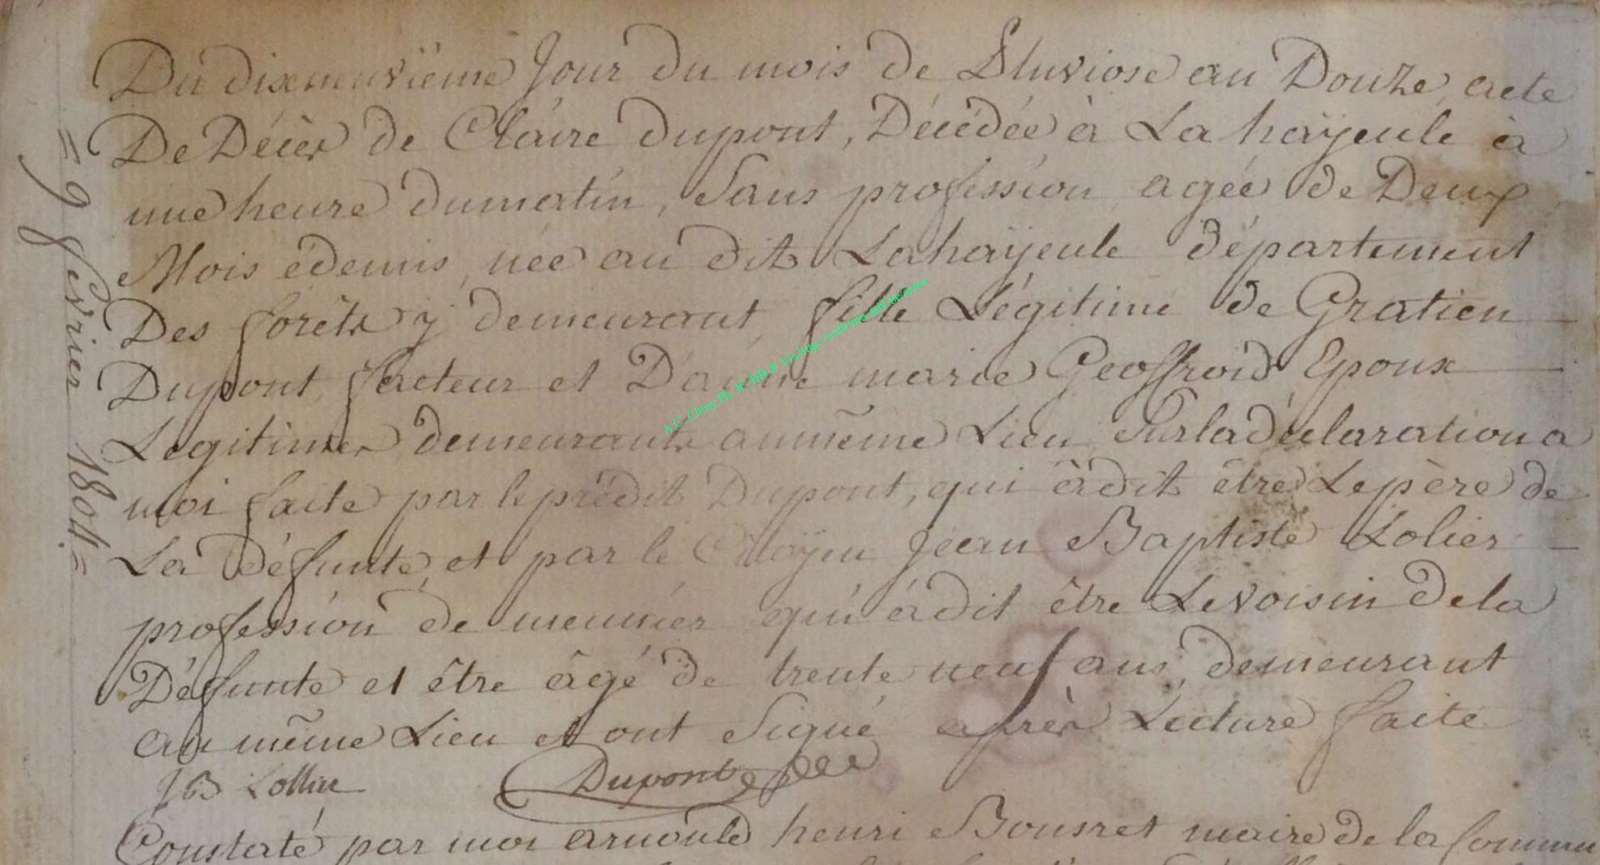 Du dixneuvième Jour du mois de Pluviose an Douze, acte
De Décès de Claire Dupont, Décédée à La hayeule à
une heure dumatin, Sans profession agée de Deux
Mois édemis, née au dit Lahayeule département
Des forêts y demeurant fille Légitime de Gratien
Dupont facteur et D'anne marie Geoffroid Epoux
Légitimes demeurants aumême Lieu Surladéclaration a
moi faite par leprédit Dupont, qui àdit être Lepère de
La Défunte, et par le Citoyen Jean Baptiste Lolier
profession de meunier qui àdit être Levoisin dela
Défunte et être âgé de trente neuf ans, demeurant
au même Lieu et ont Signé après Lecture faite
JB Lollier Dupont
Constaté par moi arnould henri Bousret maire de la Commu
= 9 fevrier 1804. =